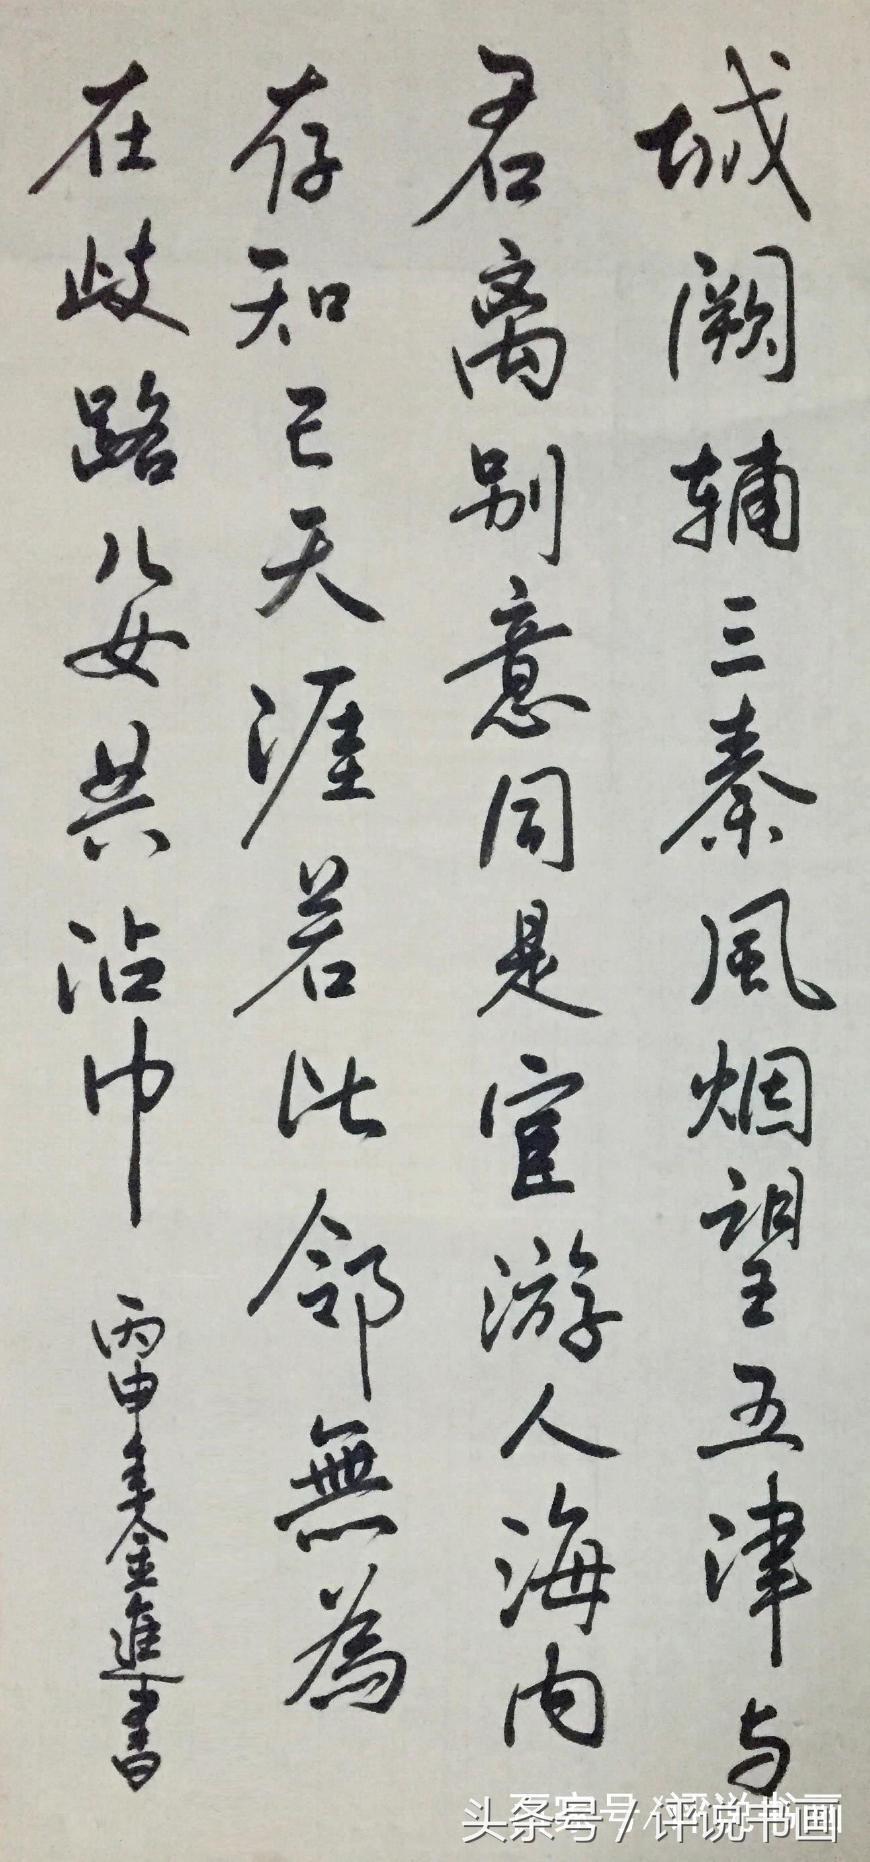 城阙辅三秦風烟望五津与
君离别意同是宦游人海内
存知己天涯若比邻無為
在歧路儿女共沾巾 丙申金進書
头条号/评说书画